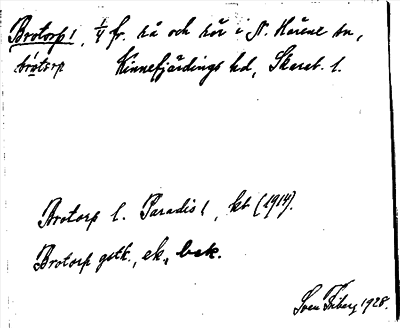 Brotorp 1, 1/4 fr. rå och rör i N. Härene sn,
brotsrp Kinnefjärdings hd, Skarab. l.
Brotorp l. Paradis 1, kt (1914).
Brotorp gstk., ek., bek.
Sven Fiberg 1928.